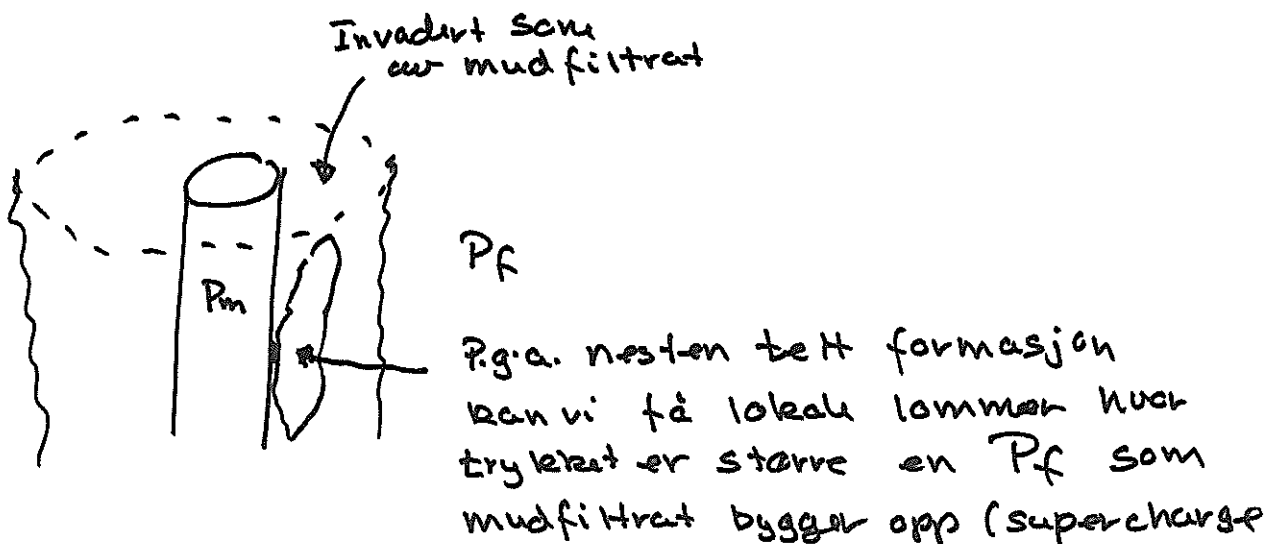 Invadert sone
av mudfiltrat
Pm
Pf
P.g.a. nesten tett formasjon
kan vi få lokale lommer hvor
trykket er større en Pf som
mudfiltrat bygger opp (supercharge